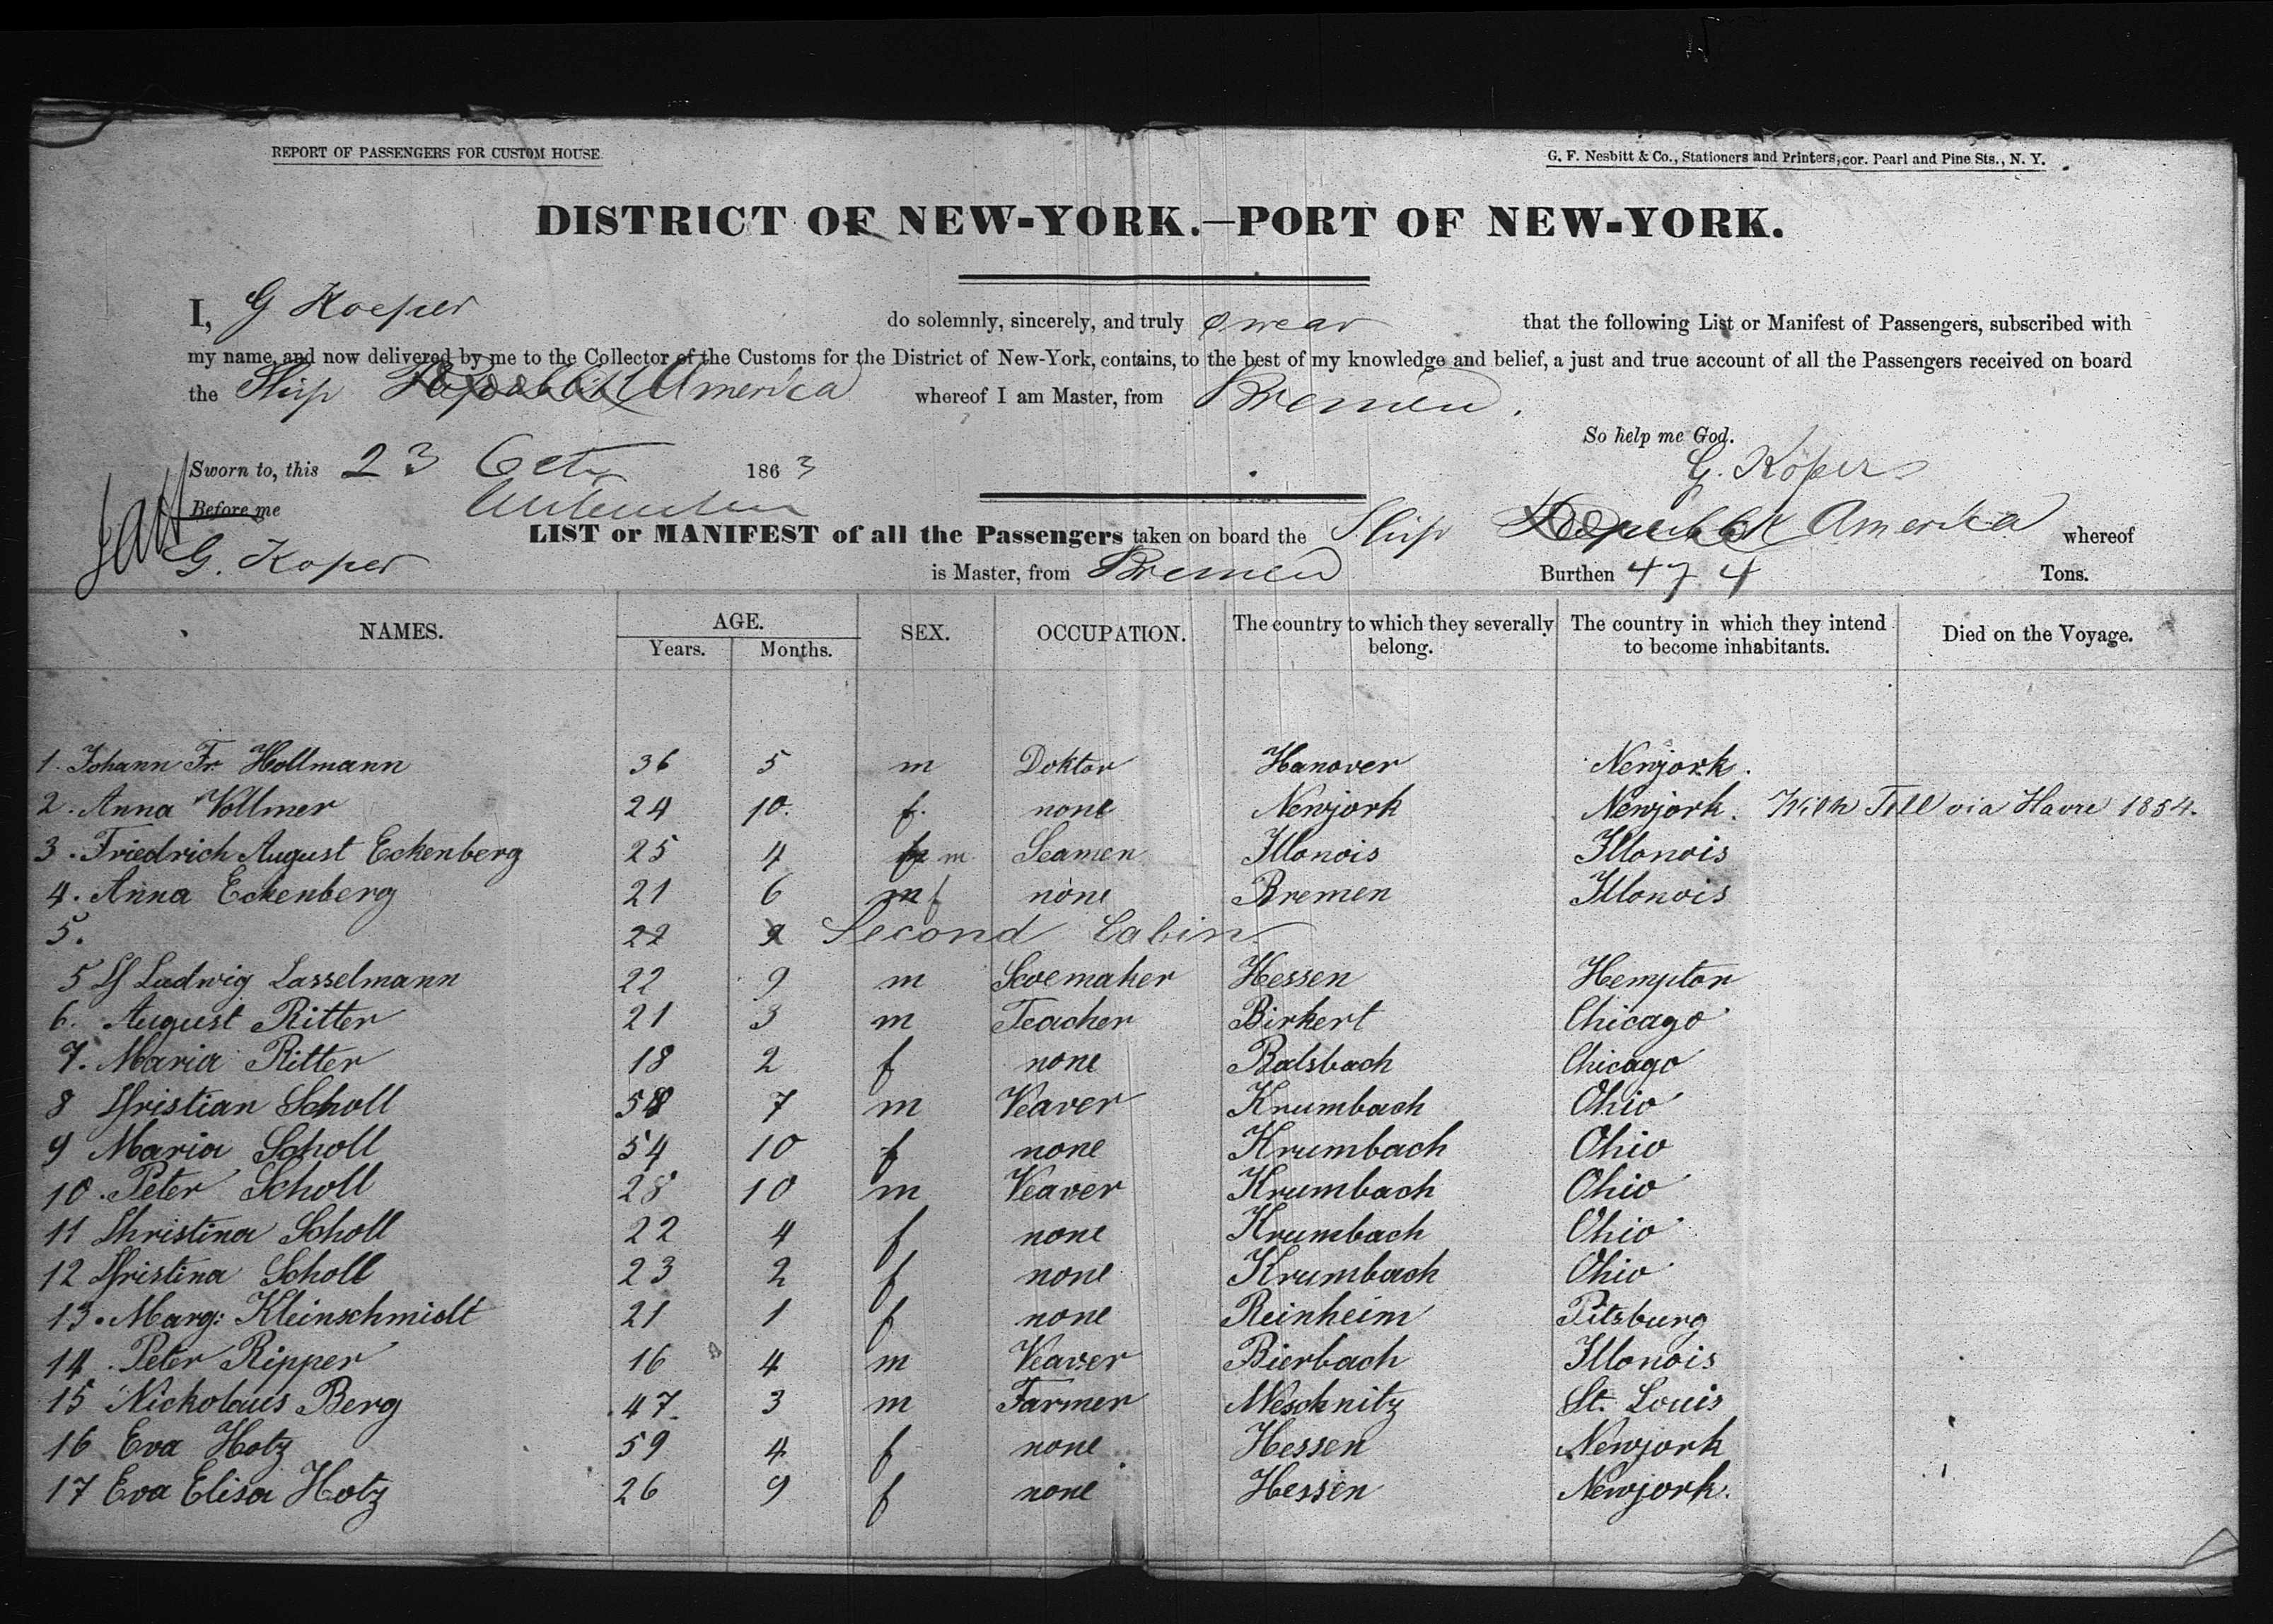 REPORT OF PASSENGERS FOR CUSTOM HOUSE.
G. F. Nesbitt & Co., Stationers and Printers, cor. Pearl and Pine Sts., N. Y.
DISTRICT OF NEW-YORK.—PORT OF NEW-YORK.
I, G Koeper do solemnly, sincerely, and truly swear that the following List or Manifest of Passengers, subscribed with
my name, and now delivered by me to the Collector of the Customs for the District of New-York, contains, to the best of my knowledge and belief, a just and true account of all the Passengers received on board
the Ship Republik America whereof I am Master, from Bremen.
So help me God.
Sworn to, this 23 Octr 1863 G. Köper
Before me
LIST or MANIFEST of all the Passengers taken on board the Ship Republik America whereof
G. Koper is Master, from Bremen Burthen 474 Tons.
NAMES. AGE. Years. Months. SEX. OCCUPATION. The country to which they severally belong. The country in which they intend to become inhabitants. Died on the Voyage.
1. Johann Fr. Hollmann 36 5 m Doktor Hanover Newjork.
2. Anna Vollmer 24 10. f. none Newjork Newjork. With Tell via Havre 1854.
3. Friedrich August Eckenberg 25 4 m Seamen Illonois Illonois
4. Anna Eckenberg 21 6 m f none Bremen Illonois
5. 22 9 Second Cabin
5 Ludwig Lasselmann 22 9 m Scoemaker Hessen Hempton
6. August Ritter 21 3 m Teacher Birkert Chicago
7. Maria Ritter 18 2 f none Balsbach Chicago
8 Christian Scholl 58 7 m Veaver Krumbach Ohio
9 Maria Scholl 54 10 f none Krumbach Ohio
10. Peter Scholl 28 10 m Veaver Krumbach Ohio
11 Christina Scholl 22 4 f none Krumbach Ohio
12 Christina Scholl 23 2 f none Krumbach Ohio
13. Marg: Kleinschmidt 21 1 f none Reinheim Pitsburg
14. Peter Ripper 16 4 m Veaver Bierbach Illonois
15 Nickolaus Berg 47 3 m Farmer Weschnitz St. Louis
16 Eva Hotz 59 4 f none Hessen Newjork
17 Eva Elisa Hotz 26 9 f none Hessen Newjork.